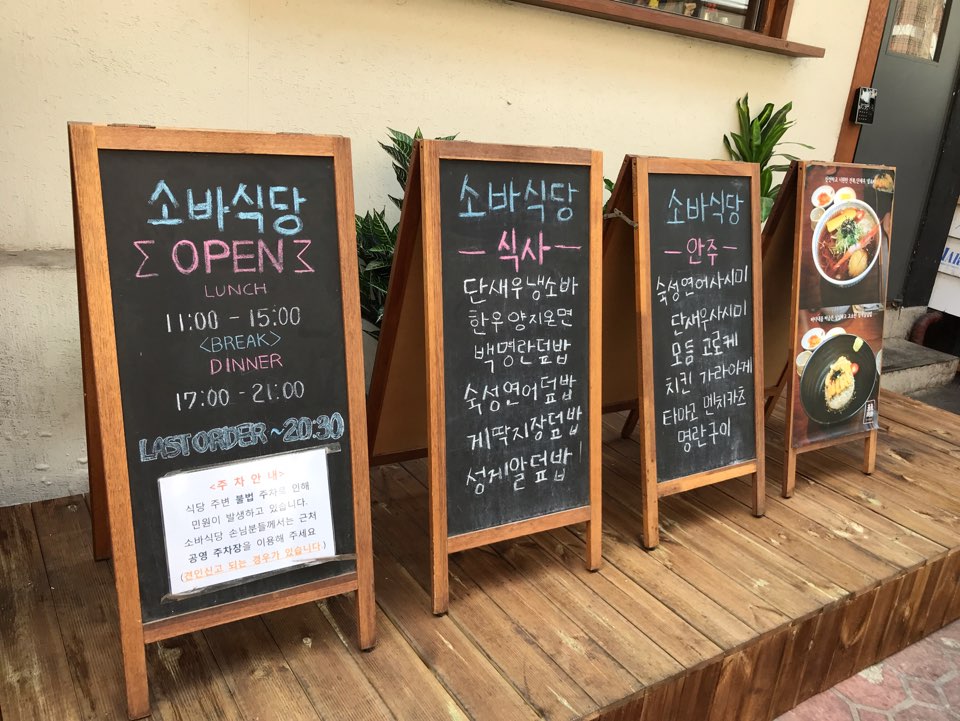 소바식당
OPEN
LUNCH
11:00 - 15:00
<BREAK>
DINNER
17:00 - 21:00
LAST ORDER ~ 20:30
<주 차 안 내>
식당 주변 불법 주차로 인해
민원이 발생하고 있습니다.
소바식당 손님분들께서는 근처
공영 주차장을 이용해 주세요
(견인신고 되는 경우가 있습니다.)
소바식당
- 식사 -
단새우냉소바
한우양지온면
백명란덮밥
숙성연어덮밥
게딱지장덮밥
성게알덮밥!
소바식당
- 안주 -
숙성연어사시미
단새우사시미
모듬 고로케
치킨 가라아게
타마고 멘치카츠
명란구이